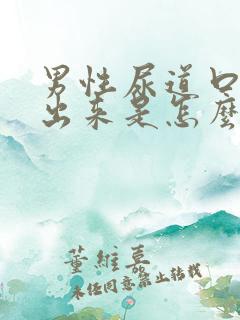 男性尿道口
出来是怎麽
董維慕
未任同意禁止转载